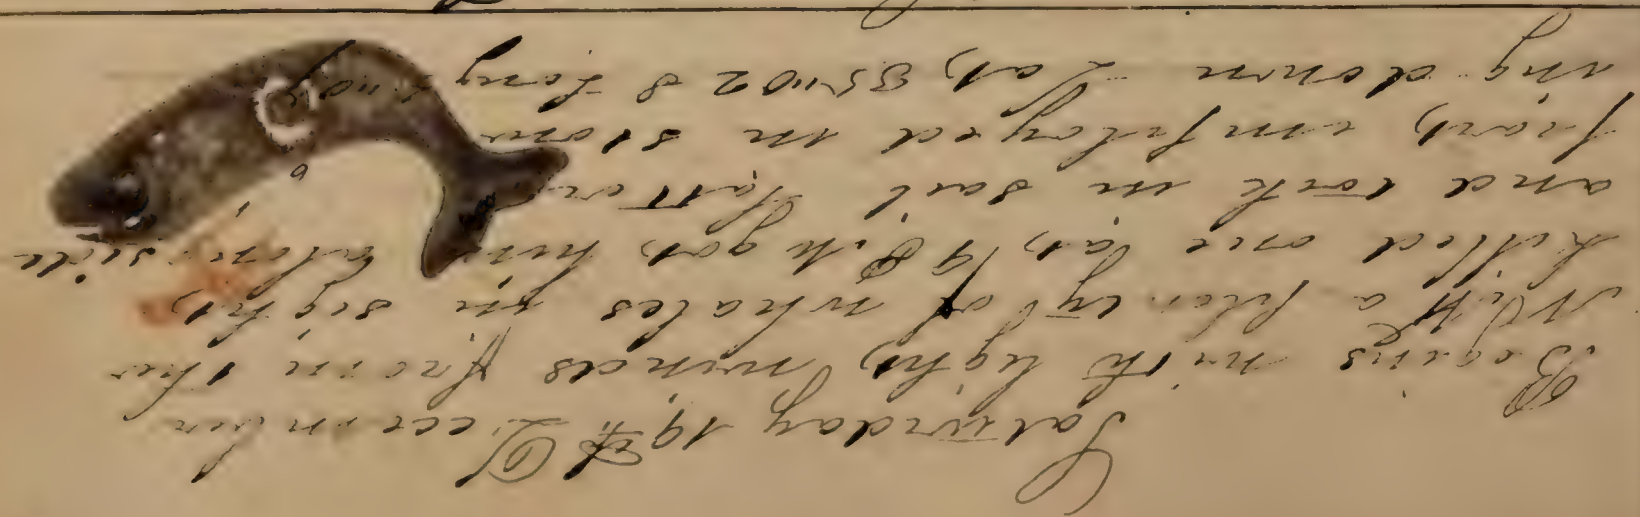 Saturday 19th December
Begins with light, winds from the
N.W. a plenty of whales in sight,
killed one at, 9 got, him along side
and took in sail Latter
part, employed in stow
ing down Lat, 35"02 S Long